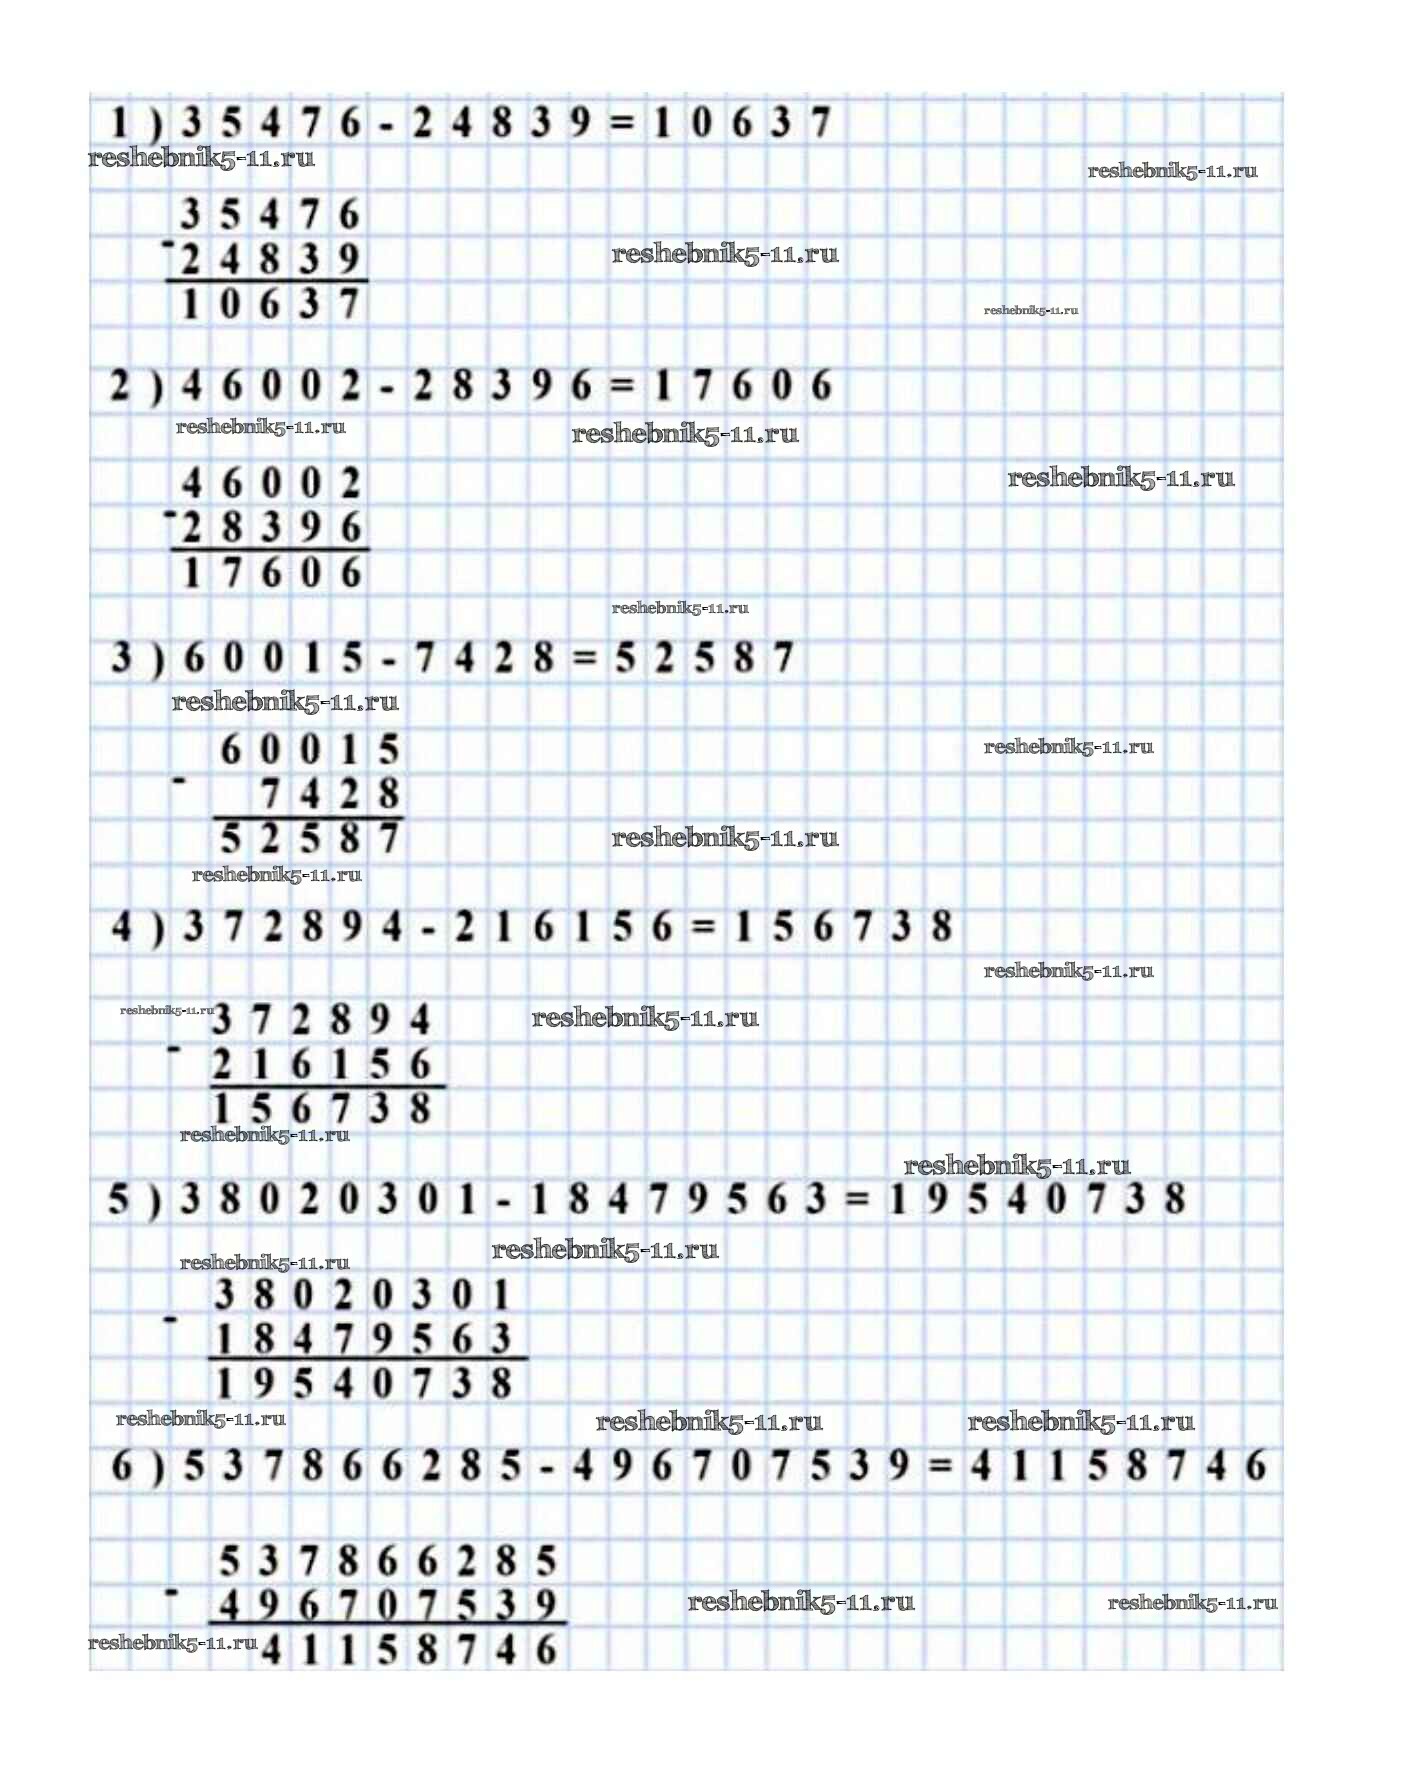 1)35476-24839=10637
reshebnik5-11.ru
reshebnik5-11.ru
35476
-24839
reshebnik5-11.ru
10637
reshebnik5-11.ru
2)46002-28396=17606
reshebnik5-11.ru
reshebnik5-11.ru
46002
reshebnik5-11.ru
-28396
17606
reshebnik5-11.ru
3)60015-7428=52587
reshebnik5-11.ru
60015
reshebnik5-11.ru
- 7428
52587
reshebnik5-11.ru
reshebnik5-11.ru
4)372894-216156=156738
reshebnik5-11.ru
reshebnik5-11.ru
372894
reshebnik5-11.ru
- 216156
156738
reshebnik5-11.ru
reshebnik5-11.ru
5)38020301-18479563=19540738
reshebnik5-11.ru
reshebnik5-11.ru
38020301
- 18479563
19540738
reshebnik5-11.ru
reshebnik5-11.ru
reshebnik5-11.ru
6)537866285-496707539=41158746
537866285
- 496707539
reshebnik5-11.ru
reshebnik5-11.ru
reshebnik5-11.ru
41158746